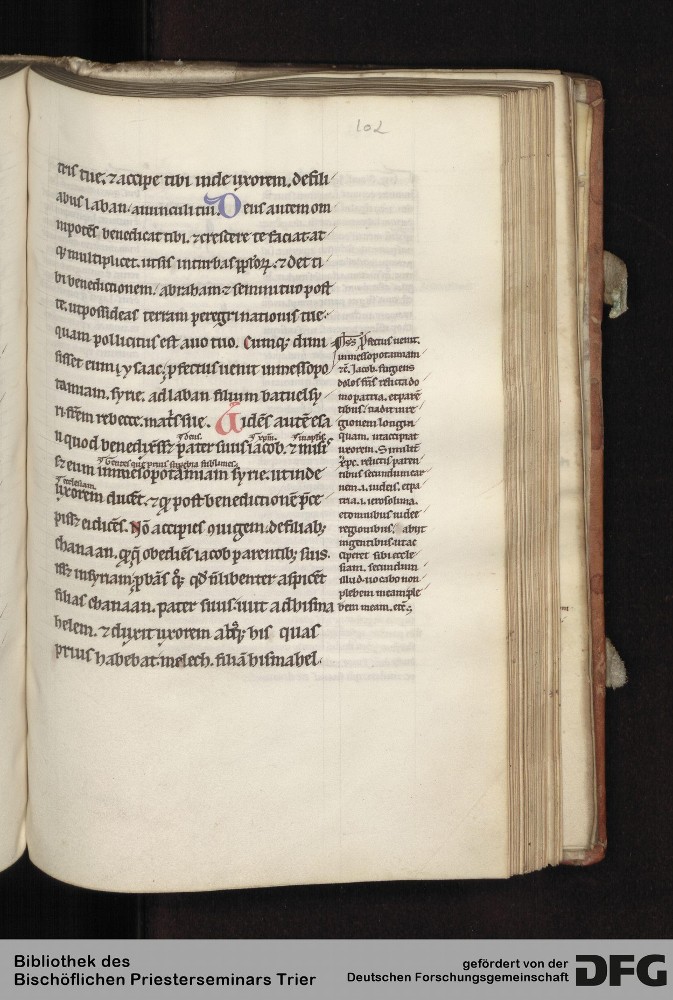 102
tris tue. ⁊ accipe tibi inde uxorem. de fili
abus laban auunculi tui. Deus autem om
nipotēs benedicat tibi. ⁊ crescere te faciat at
qꝫ multiplicet. ut sis in turbas ppsorꝝ. ⁊ det ti
bi benedictionem abrahām ⁊ semini tuo post
te. ut possideas terram peregrinationis tue.
quam pollicitus est auo tuo. Cumqꝫ dimi
sisset eum ysaac. pfectus uenit in mesopo
tamiam. syrie. ad laban filium batuel sy
ri. frēm rebecce. matͥs sue. Uidēs autē esa
u quod benedixisset pater suus iacob. ⁊ misi
sset eum in mesopotamiam syrie. ut inde
uxorem duceret. ⁊ qꝫ post benedictionē pͥce
pisset ei dicēs. Nō accipies 9iugem. de filiabꝫ
chanaan. qꝫ obediēs iacob parentibꝫ suis.
isset in syriam. pbās qꝫ qd̄ n̄ libenter aspicēt
filias chanaan. pater suus. iuit ad hisma
helem. ⁊ duxit uxorem absqꝫ his quas
prius habebat. melech. filiā hismahel.
deus. xpm. in aptis.
gentes que prius superbia sublimes
ecclesiam.
pfectus uenit.
in mesopotamiam
⁊c̄. Iacob. fugiens
dolos fr̄is relicta do
mo patria. et paren
tibus. uadit in re
gionem longin
quam. ut accipiat
uxorem. Similit̄
xp̄c. relictis paren
tibus secundum car
nem. i. iudeis. et pa
tria. i. ierosolima.
et omnibus iudee
regionibus. abiit
in gentibus. ut ac
ciperet sibi eccle
siam. secundum
illud. uocabo non
plebem meam. ple
bem meam. etc̄.
Bibliothek des
Bischöflichen Priesterseminars Trier
gefördert von der
Deutschen Forschungsgemeinschaft
DFG